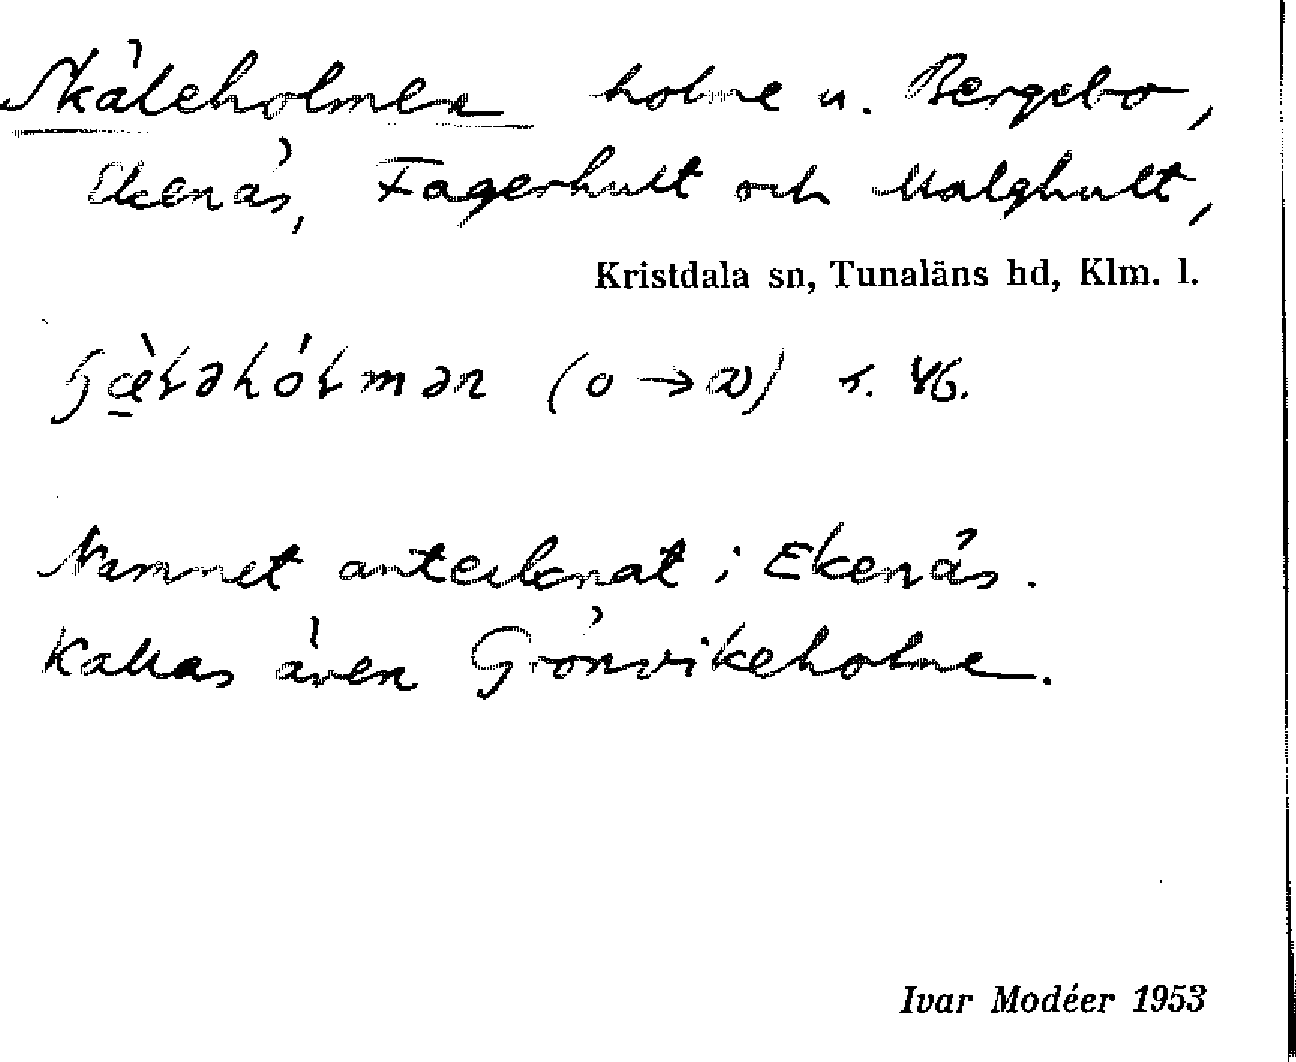 Skäleholmen holme u. Bergebo,
Ekenäs, Fagerhult och Malghult,
Kristdala sn, Tunaläns hd, Klm. l.
(o → ω) s. 46.
Namnet antecknat i Ekenäs.
Kallas även Grönsvikeholme.
Ivar Modéer 1953